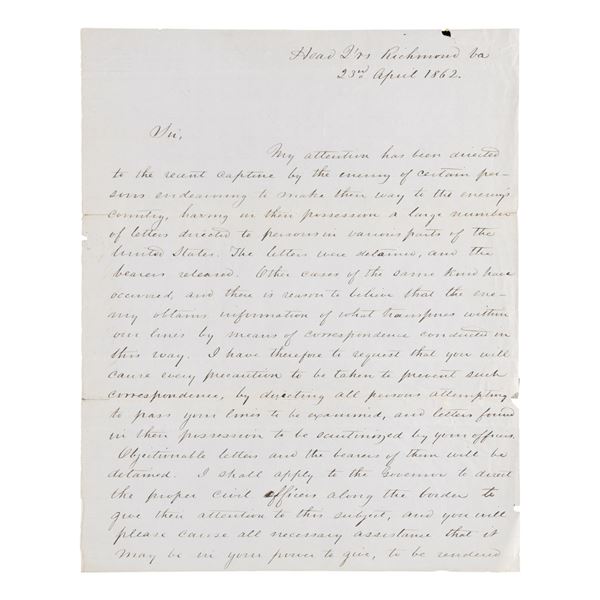 Head Q'rs Richmond Va
23rd April 1862.
Sir,
My attention has been directed
to the recent capture by the enemy of certain per-
sons endeavoring to make their way to the enemy's
country, having in their possession a large number
of letters directed to persons in various parts of the
United States. The letters were detained, and the
bearers released. Other cases of the same kind have
occurred, and there is reason to believe that the ene-
my obtains information of what transpires within
our lines by means of correspondence conducted in
this way. I have therefore to request that you will
cause every precaution to be taken to prevent such
correspondence, by directing all persons attempting
to pass your lines to be examined, and letters found
in their possession to be scutinized by your officers.
Objectionable letters and the bearers of them will be
detained. I shall apply to the Governor to direct
the proper civil officers along the border to
give their attention to this subject, and you will
please cause all necessary assistance that it
may be in your power to give, to be rendered